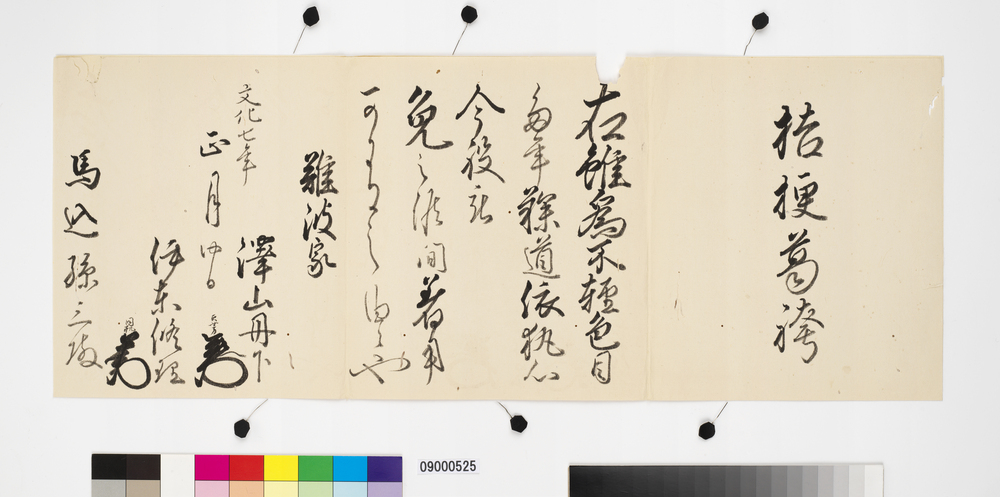 桔梗葛袴
右雖為不軽色目
多年鞠道依執心
今般令
免之候間着用
可有之候
難波家
文化七年
正月
澤山丹下
伊東修理
馬込孫三殿
09000525